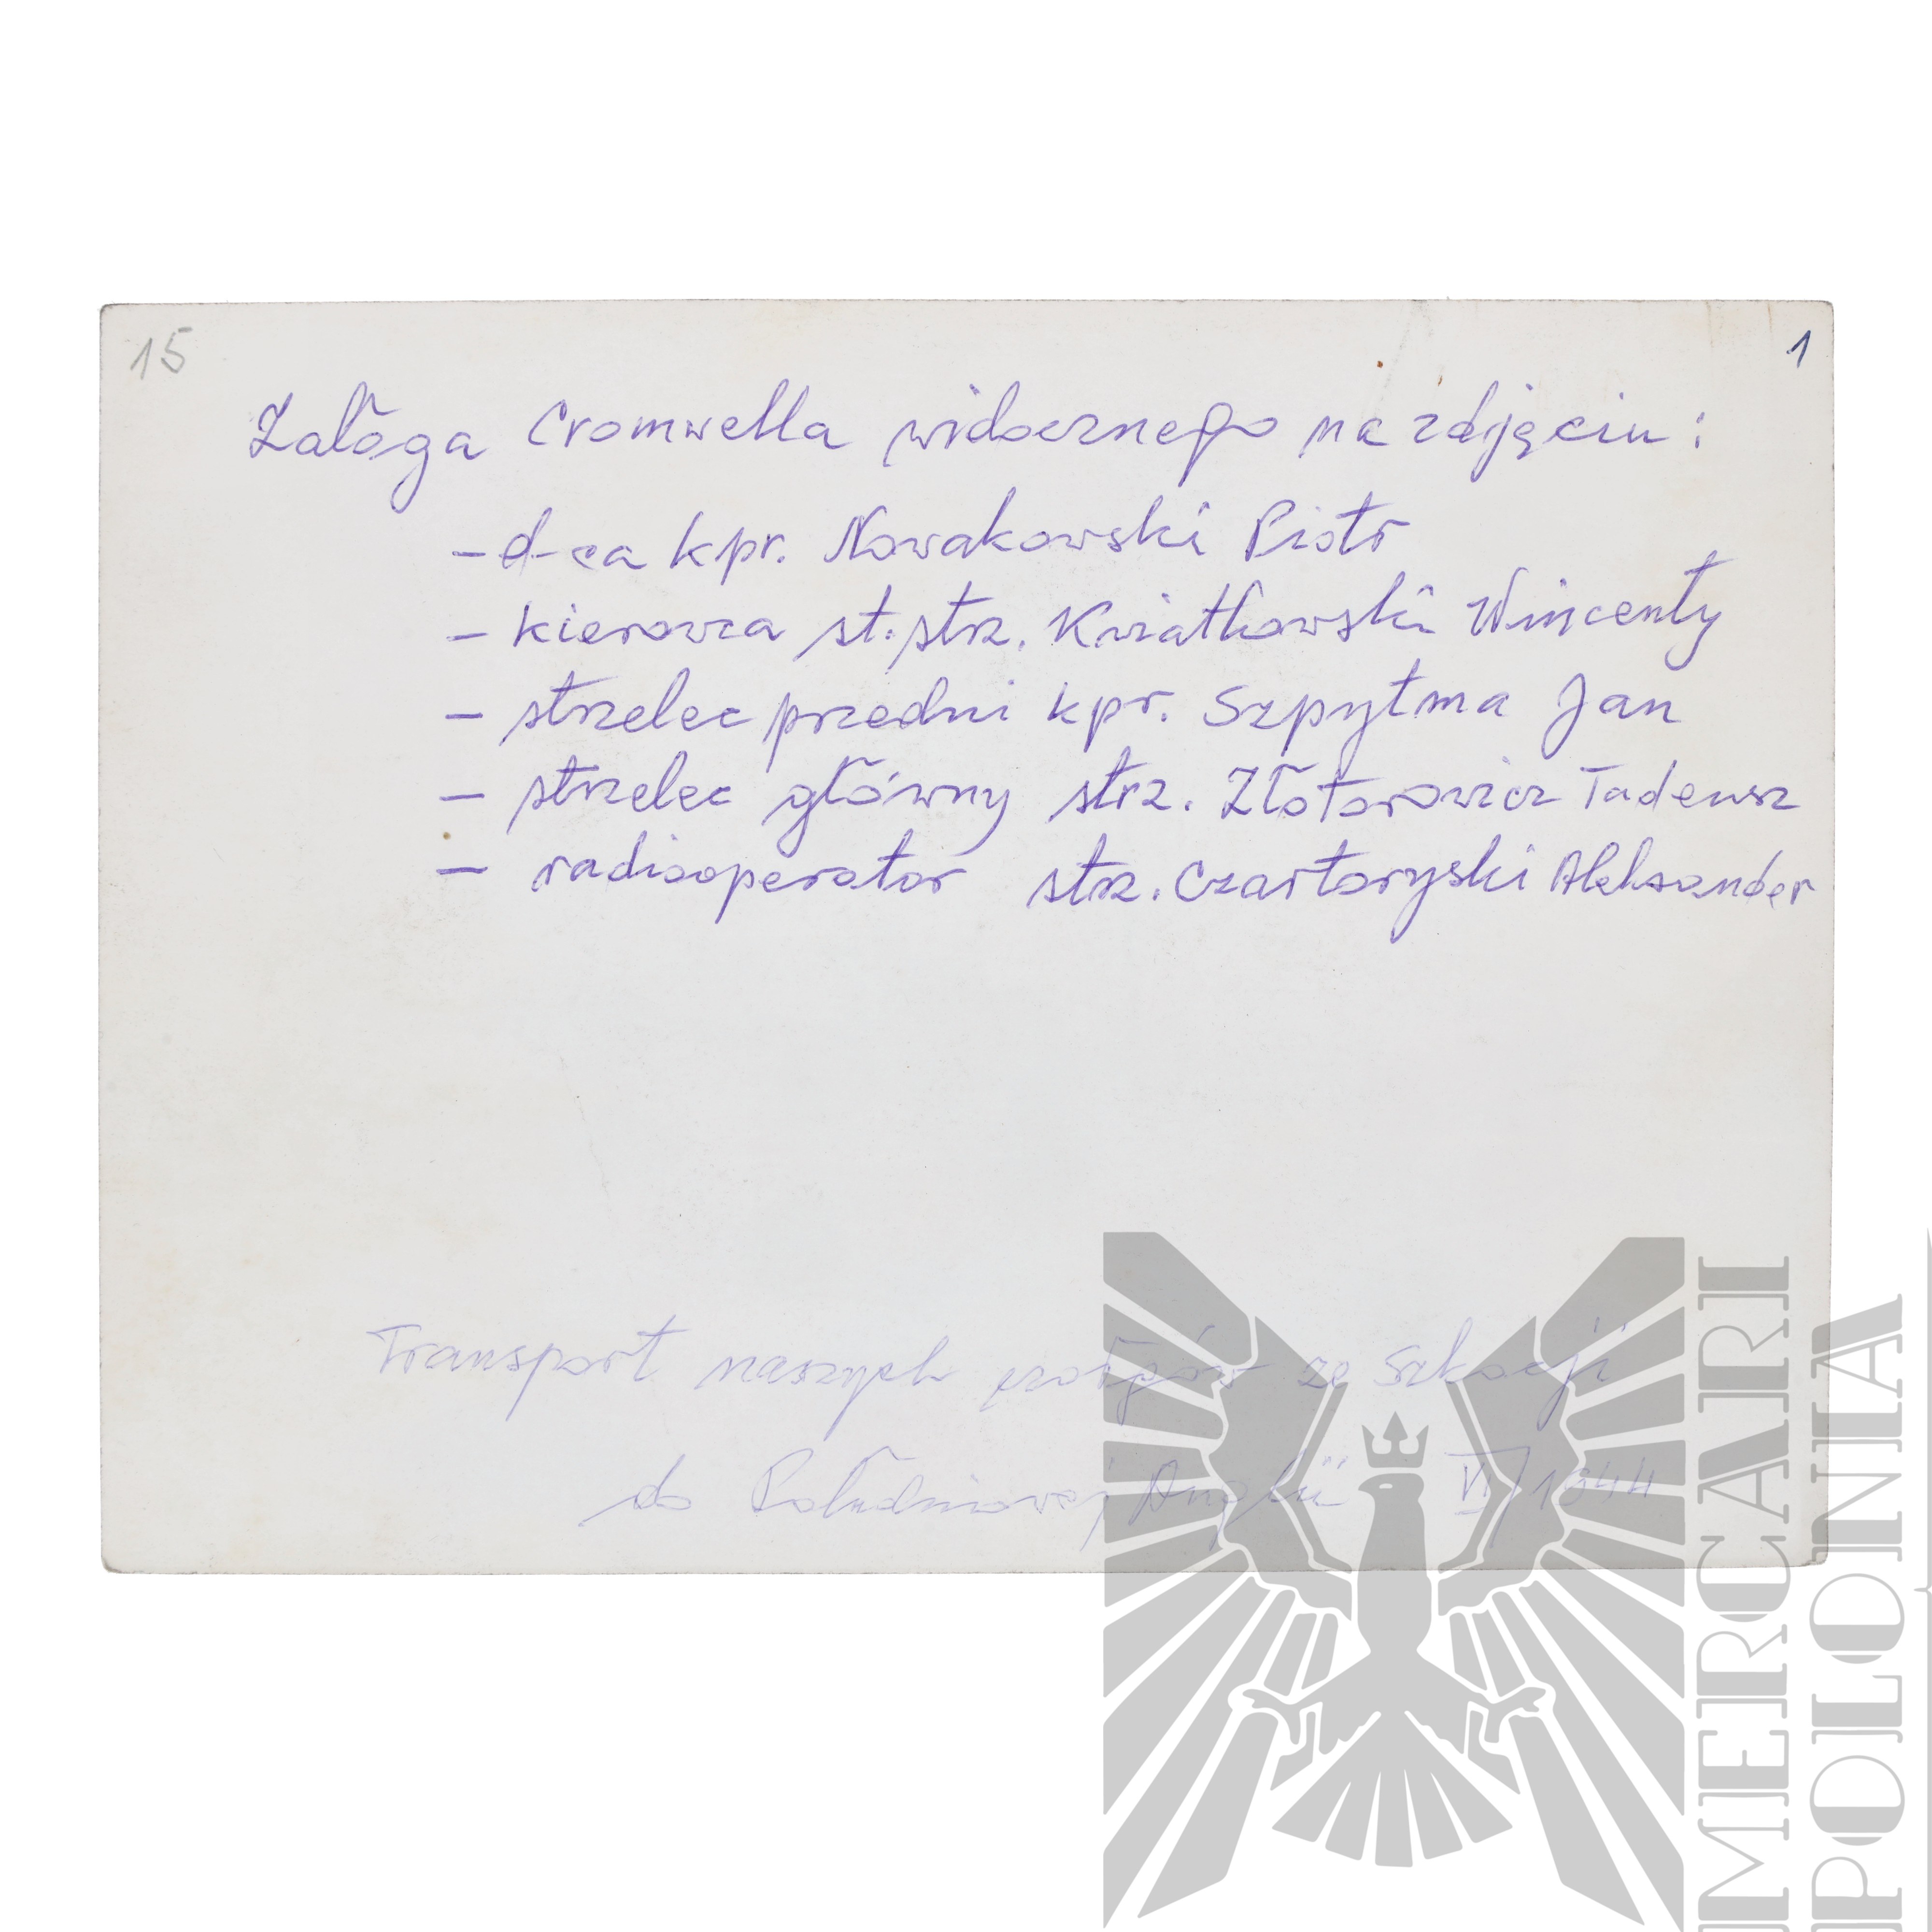 15
1
Załoga Cromwella widocznego na zdjęciu:
- d-ca kpr. Nowakowski Piotr
- kierowca st. strz. Kwiatkowski Wincenty
- strzelec przedni kpr. Szpytma Jan
- strzelec główny strz. Złotorowicz Tadeusz
- radiooperator strz. Czartoryski Aleksander
Transport naszych czołgów ze Szkocji
do Południowej Anglii VI/1944
MERCARI
POLONIA